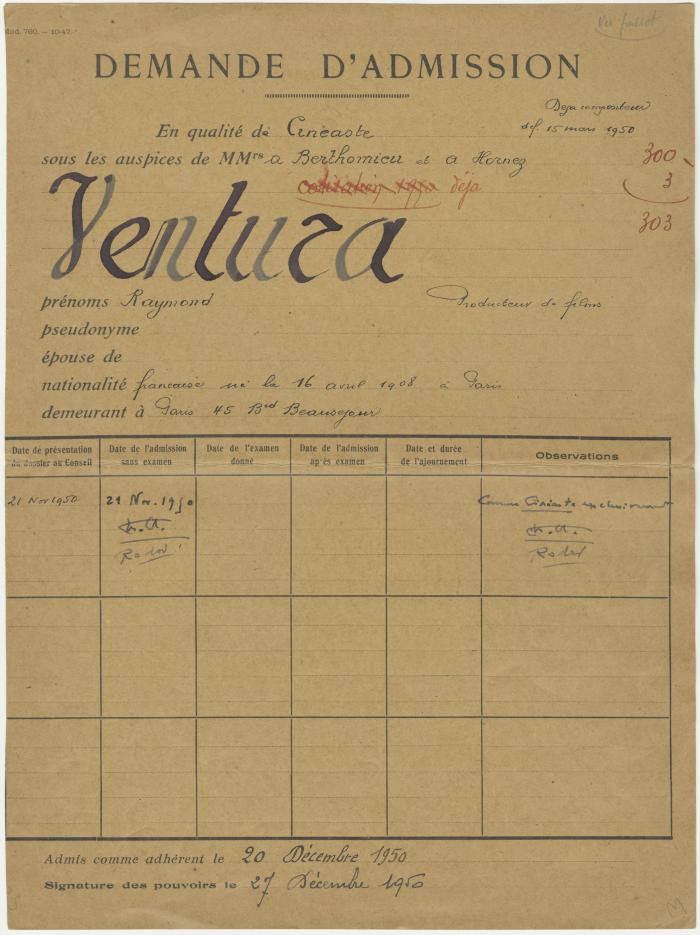 Mod. 760. — 10-47.
DEMANDE D'ADMISSION
Deja compositeur
def 15 mars 1950
En qualité de Cineaste
sous les auspices de MMrs A Berthomieu et A Hornez
300
3
303
déjà
Ventura
prénoms Raymond
Producteur de films
pseudonyme
épouse de
nationalité francaise né le 16 avril 1908 à Paris
demeurant à Paris 45 Bd Beausejour
Date de présentation du dossier au Conseil
Date de l'admission sans examen
Date de l'examen donné
Date de l'admission après examen
Date et durée de l'ajournement
Observations
21 Nov 1950
21 Nov. 1950
Comme Cinéaste exclusivement
Admis comme adhérent le 20 Décembre 1950
Signature des pouvoirs le 27 Décembre 1950